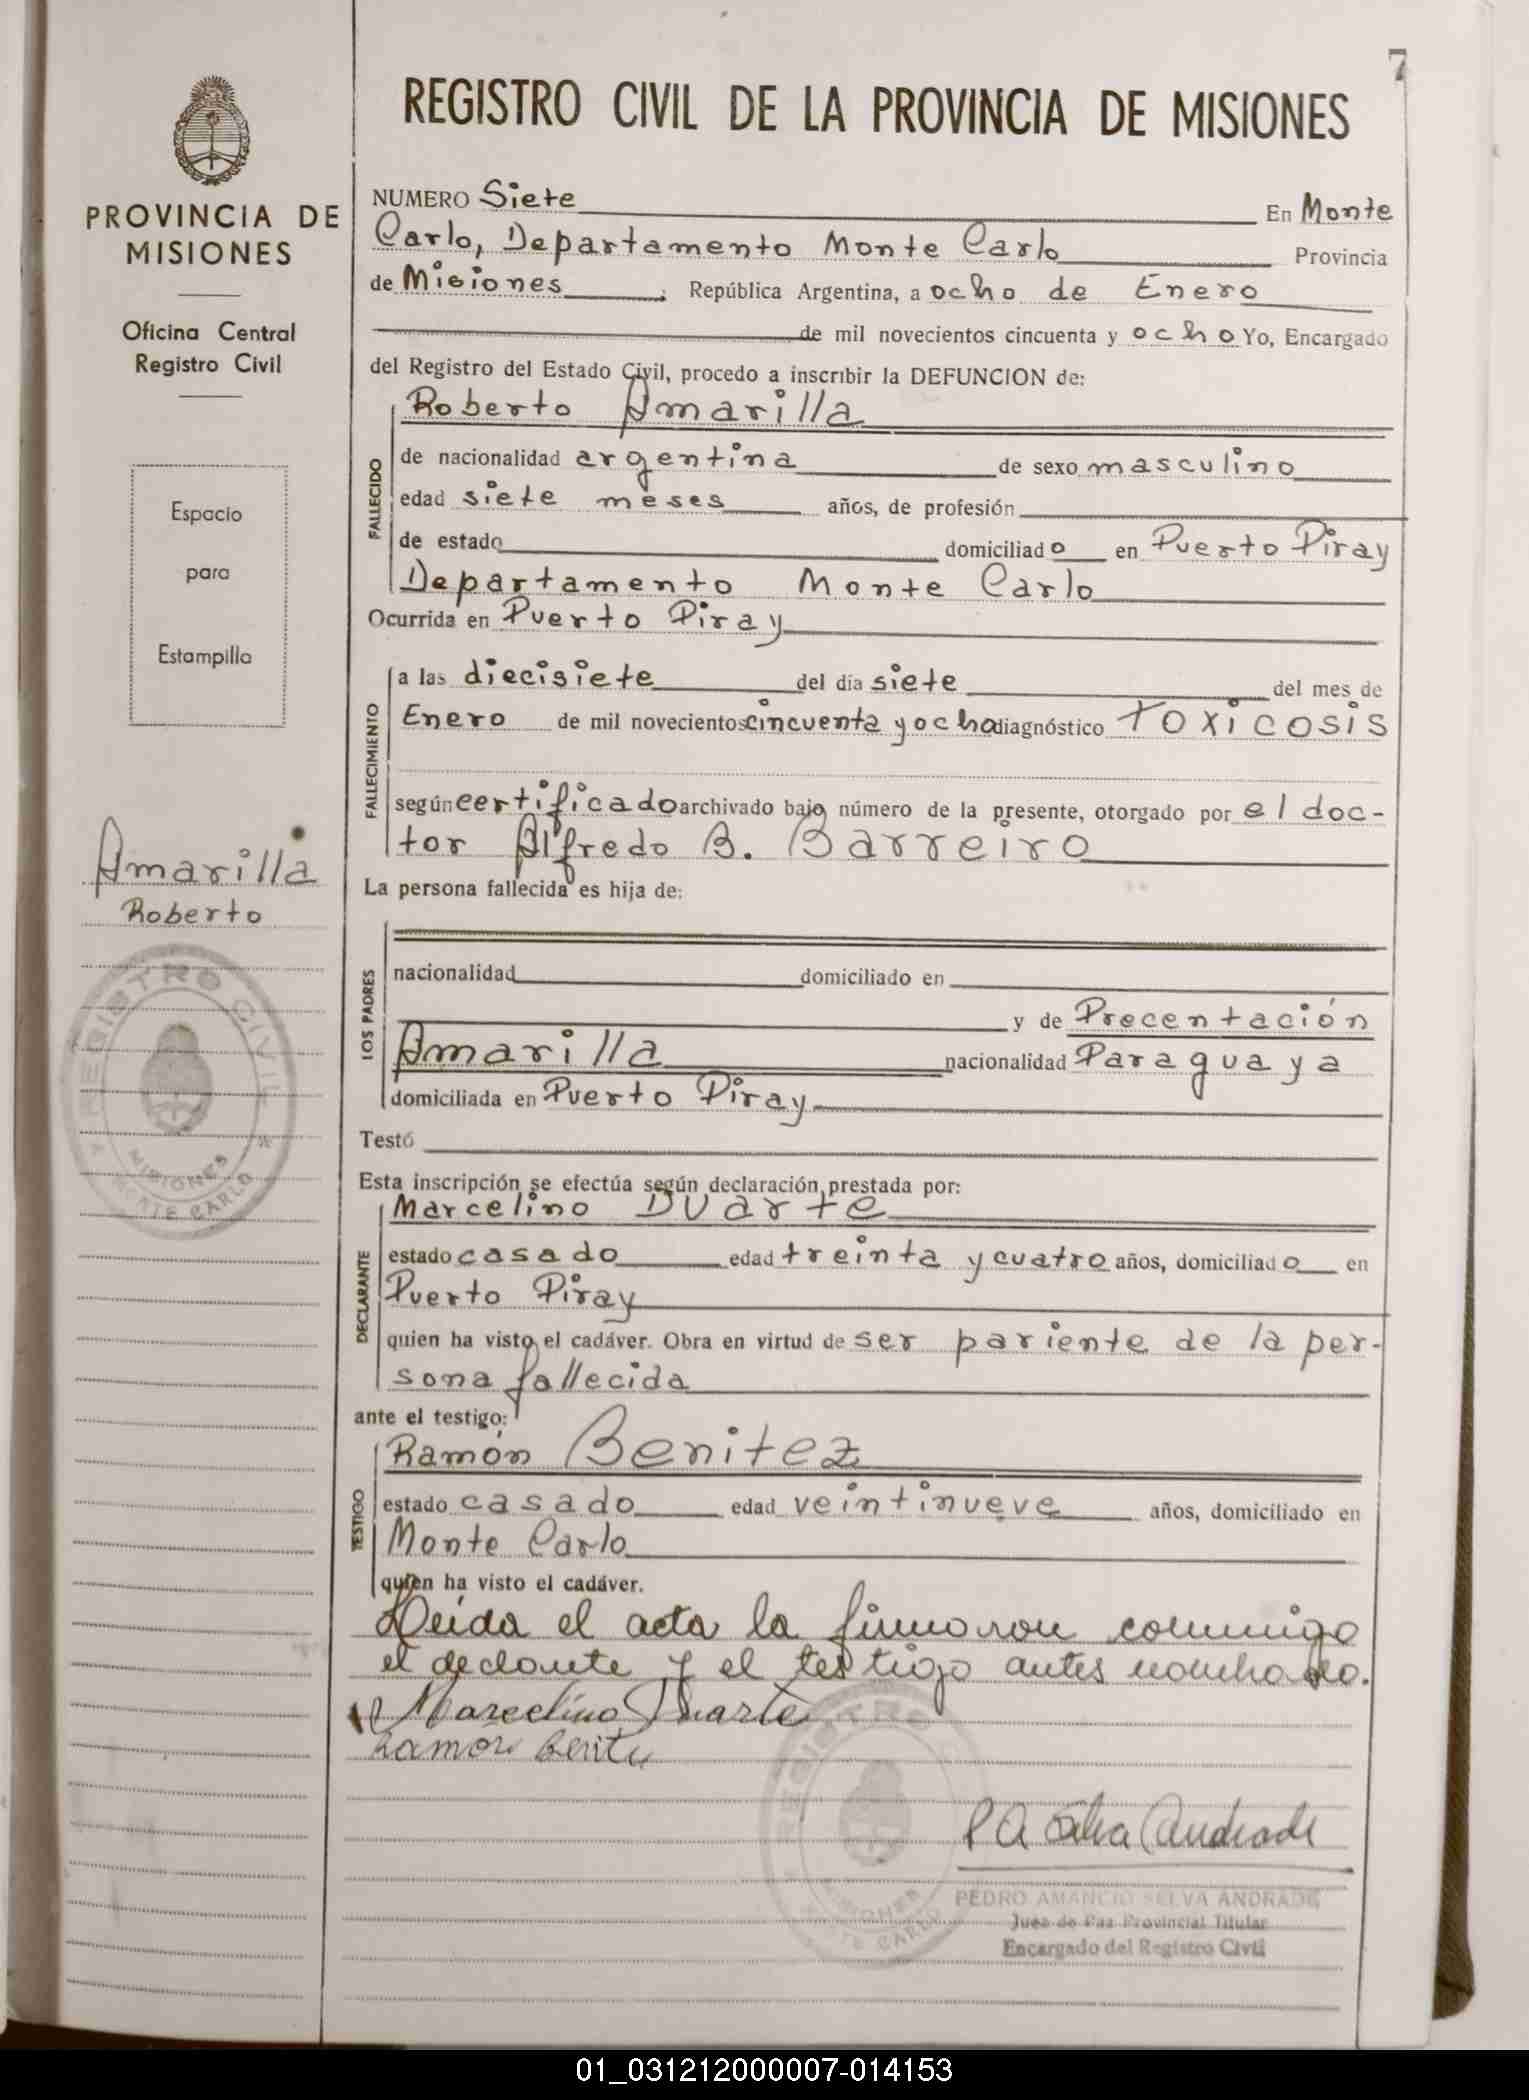 7
REGISTRO CIVIL DE LA PROVINCIA DE MISIONES
PROVINCIA DE
MISIONES
Oficina Central
Registro Civil
Espacio
para
Estampilla
Amarilla
Roberto
REGISTRO CIVIL
MISIONES
MONTE CARLO
NUMERO Siete En Monte
Carlo, Departamento Monte Carlo Provincia
de Misiones, República Argentina, a ocho de Enero
de mil novecientos cincuenta y ocho Yo, Encargado
del Registro del Estado Civil, procedo a inscribir la DEFUNCION de:
FALLECIDO
Roberto Amarilla
de nacionalidad argentina de sexo masculino
edad siete meses años, de profesión
de estado domiciliado en Puerto Piray
Departamento Monte Carlo
Ocurrida en Puerto Piray
FALLECIMIENTO
a las diecisiete del día siete del mes de
Enero de mil novecientos cincuenta y ocho diagnóstico toxicosis
según certificado archivado bajo número de la presente, otorgado por el doc-
tor Alfredo B. Barreiro
La persona fallecida es hija de:
LOS PADRES
nacionalidad domiciliado en
y de Precentación
Amarilla nacionalidad Paraguaya
domiciliada en Puerto Piray
Testó
Esta inscripción se efectúa según declaración prestada por:
DECLARANTE
Marcelino Duarte
estado casado edad treinta y cuatro años, domiciliado en
Puerto Piray
quien ha visto el cadáver. Obra en virtud de ser pariente de la per-
sona fallecida
ante el testigo:
TESTIGO
Ramón Benitez
estado casado edad veintinueve años, domiciliado en
Monte Carlo
quien ha visto el cadáver.
Leída el acta la firmaron conmigo
el declante y el testigo antes nombrado.
Marcelino Duarte
Ramón Benitez
REGISTRO
MISIONES
MONTE CARLO
P A Selva Andrade
PEDRO AMANCIO SELVA ANDRADE
Juez de Paz Provincial Titular
Encargado del Registro Civil
01_031212000007-014153